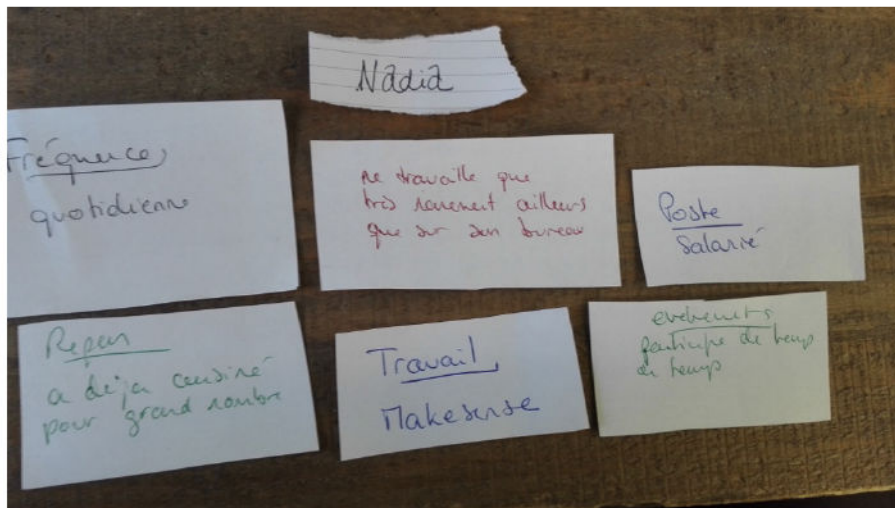 Nadia
Fréquence
quotidienne
ne travaille que
très rarement ailleurs
que sur son bureau
Poste
Salarié
Repas
a déja cuisiné
pour grand nombre
Travail
Makesense
evenements
participe de temp
en temps